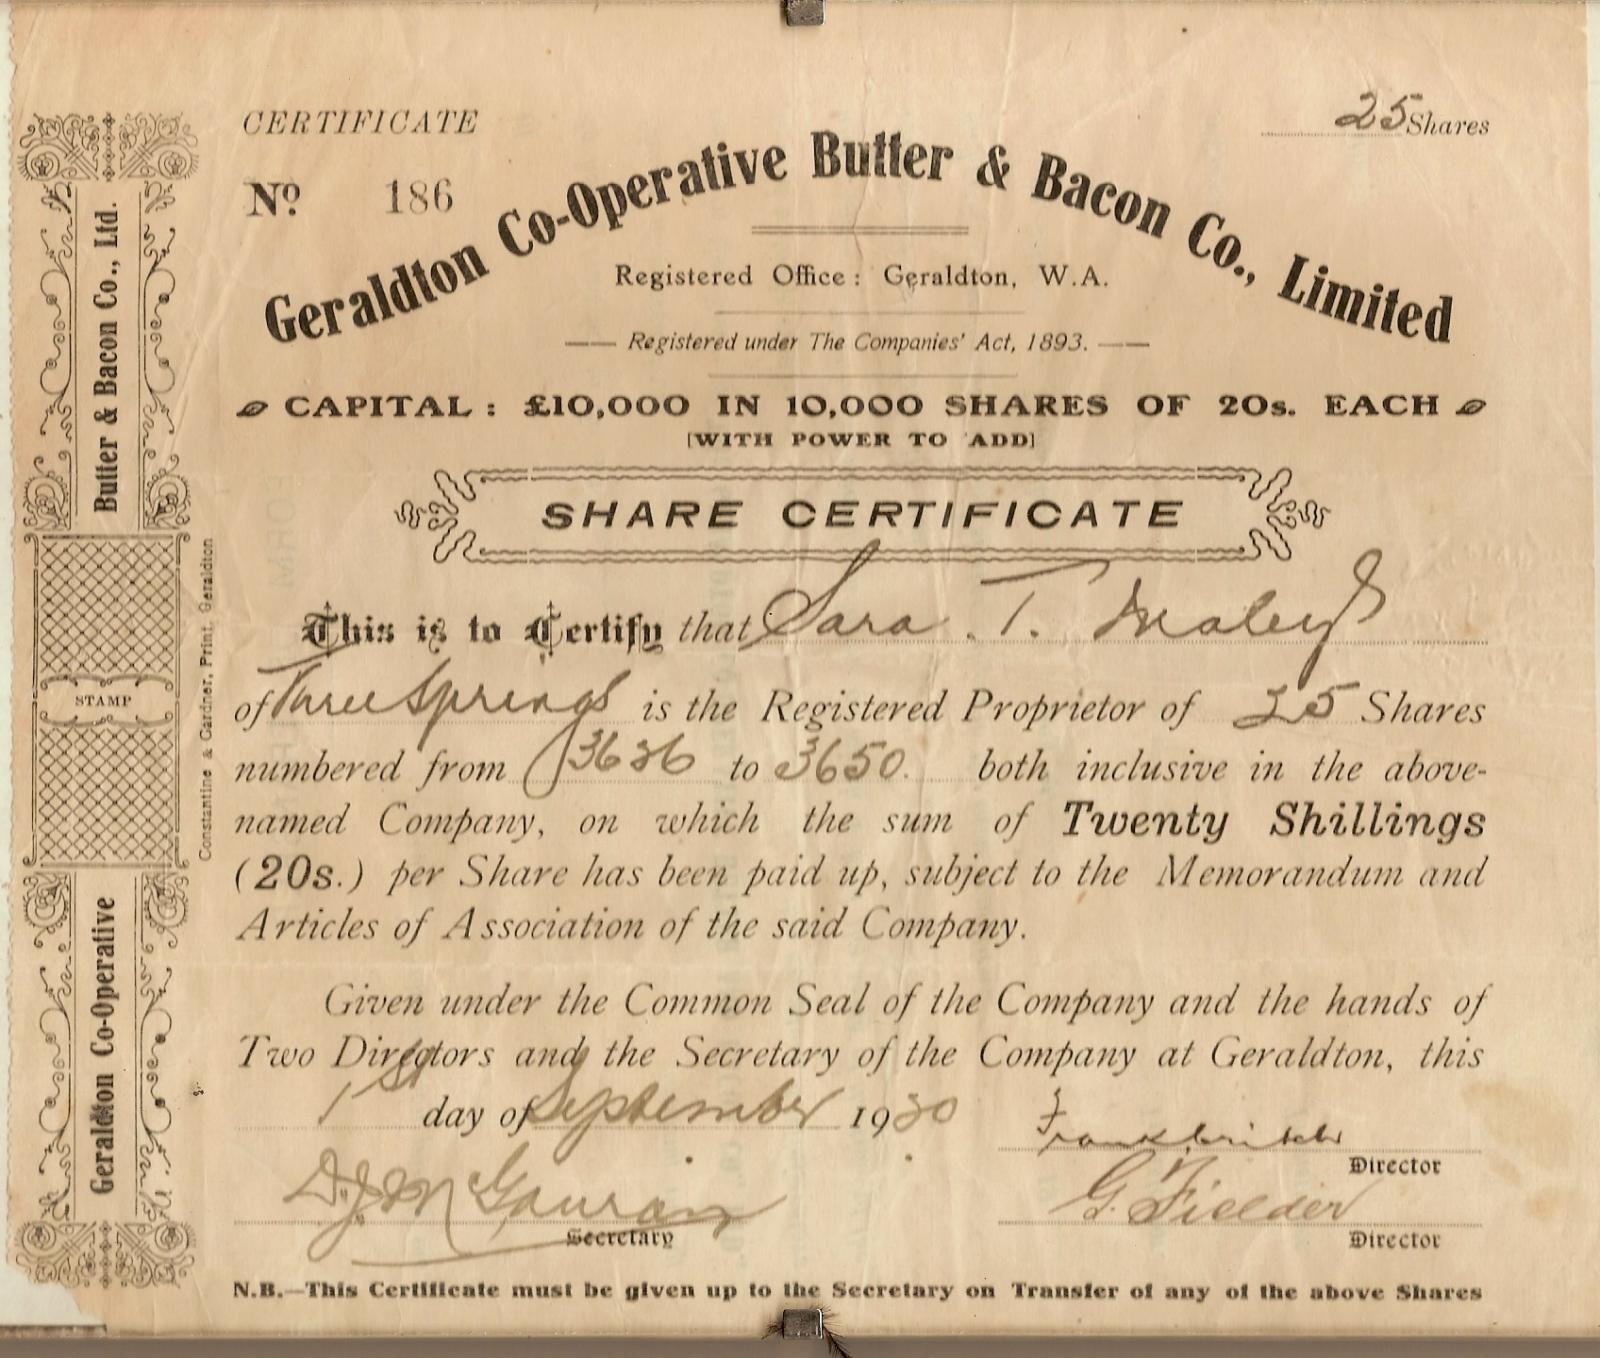 CERTIFICATE
25 Shares
No. 186
Geraldton Co-Operative Butter & Bacon Co., Limited
Registered Office: Geraldton, W.A.
Registered under The Companies' Act, 1893.
CAPITAL: £10,000 IN 10,000 SHARES OF 20s. EACH
[WITH POWER TO ADD]
SHARE CERTIFICATE
This is to Certify that Sara T. Maley
of Three Springs is the Registered Proprietor of 25 Shares
numbered from 3626 to 3650. both inclusive in the above-
named Company, on which the sum of Twenty Shillings
(20s.) per Share has been paid up, subject to the Memorandum and
Articles of Association of the said Company.
Given under the Common Seal of the Company and the hands of
Two Directors and the Secretary of the Company at Geraldton, this
1st day of September 1930
Director
D.J.M
Secretary
G. Fielder
Director
N.B.—This Certificate must be given up to the Secretary on Transfer of any of the above Shares
Geraldton Co-Operative Butter & Bacon Co., Ltd.
STAMP
Constantine & Gardner, Print, Geraldton